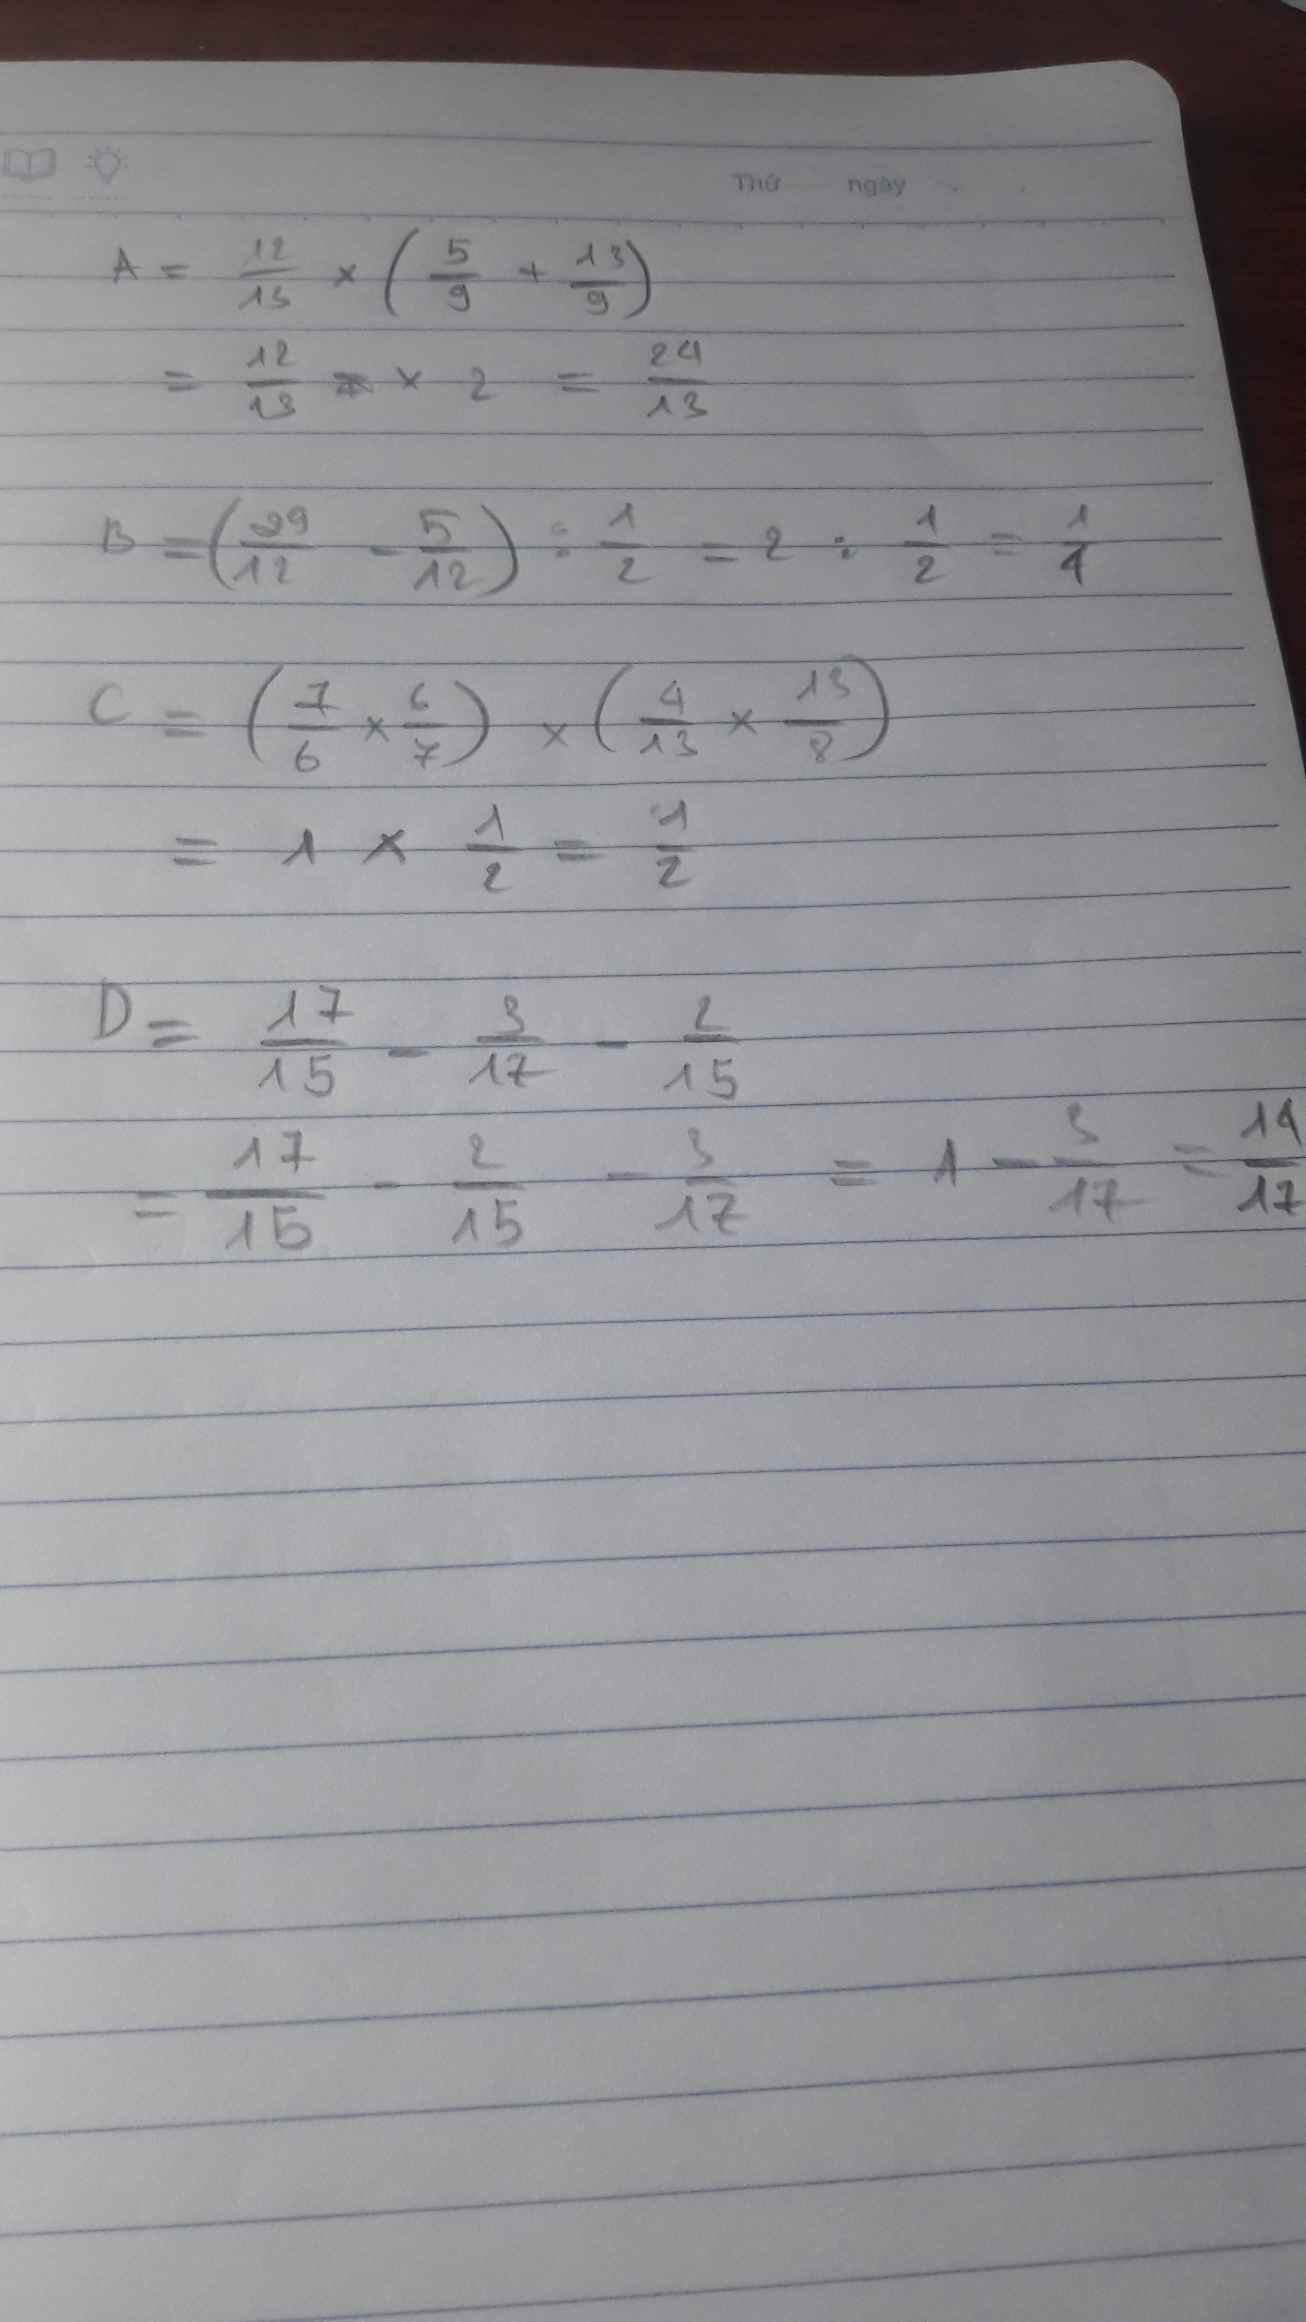 Thứ ngày
A = 12/13 × (5/9 + 13/9)
= 12/13 × 2 = 24/13
B = (29/12 - 5/12) : 1/2 = 2 : 1/2 = 1/4
C = (7/6 × 6/7) × (4/13 × 13/8)
= 1 × 1/2 = 1/2
D = 17/15 - 3/17 - 2/15
= 17/15 - 2/15 - 3/17 = 1 - 3/17 = 14/17